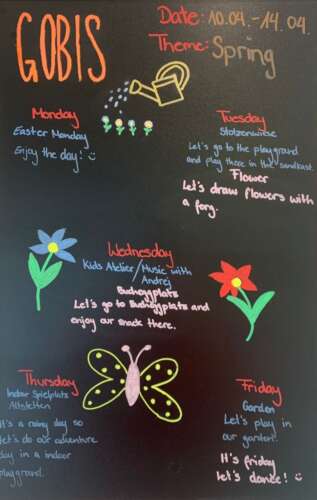 GOBIS
Date: 10.04.-14.04.
Theme: Spring
Monday
Easter Monday
Enjoy the day!
Tuesday
Stolzenwiese
Let's go to the playground
and play there in the sandkast.
Flower
Let's draw flowers with
a forg.
Wednesday
Kids Atelier/Music with
Andrej
Bucheggplatz
Let's go to Bucheggplatz and
enjoy our snack there.
Thursday
Indoor Spielplatz
Altstetten
It's a rainy day so
let's do our adventure
day in a indoor
playground.
Friday
Garden
Let's play in
our garden.
It's friday
let's dance!